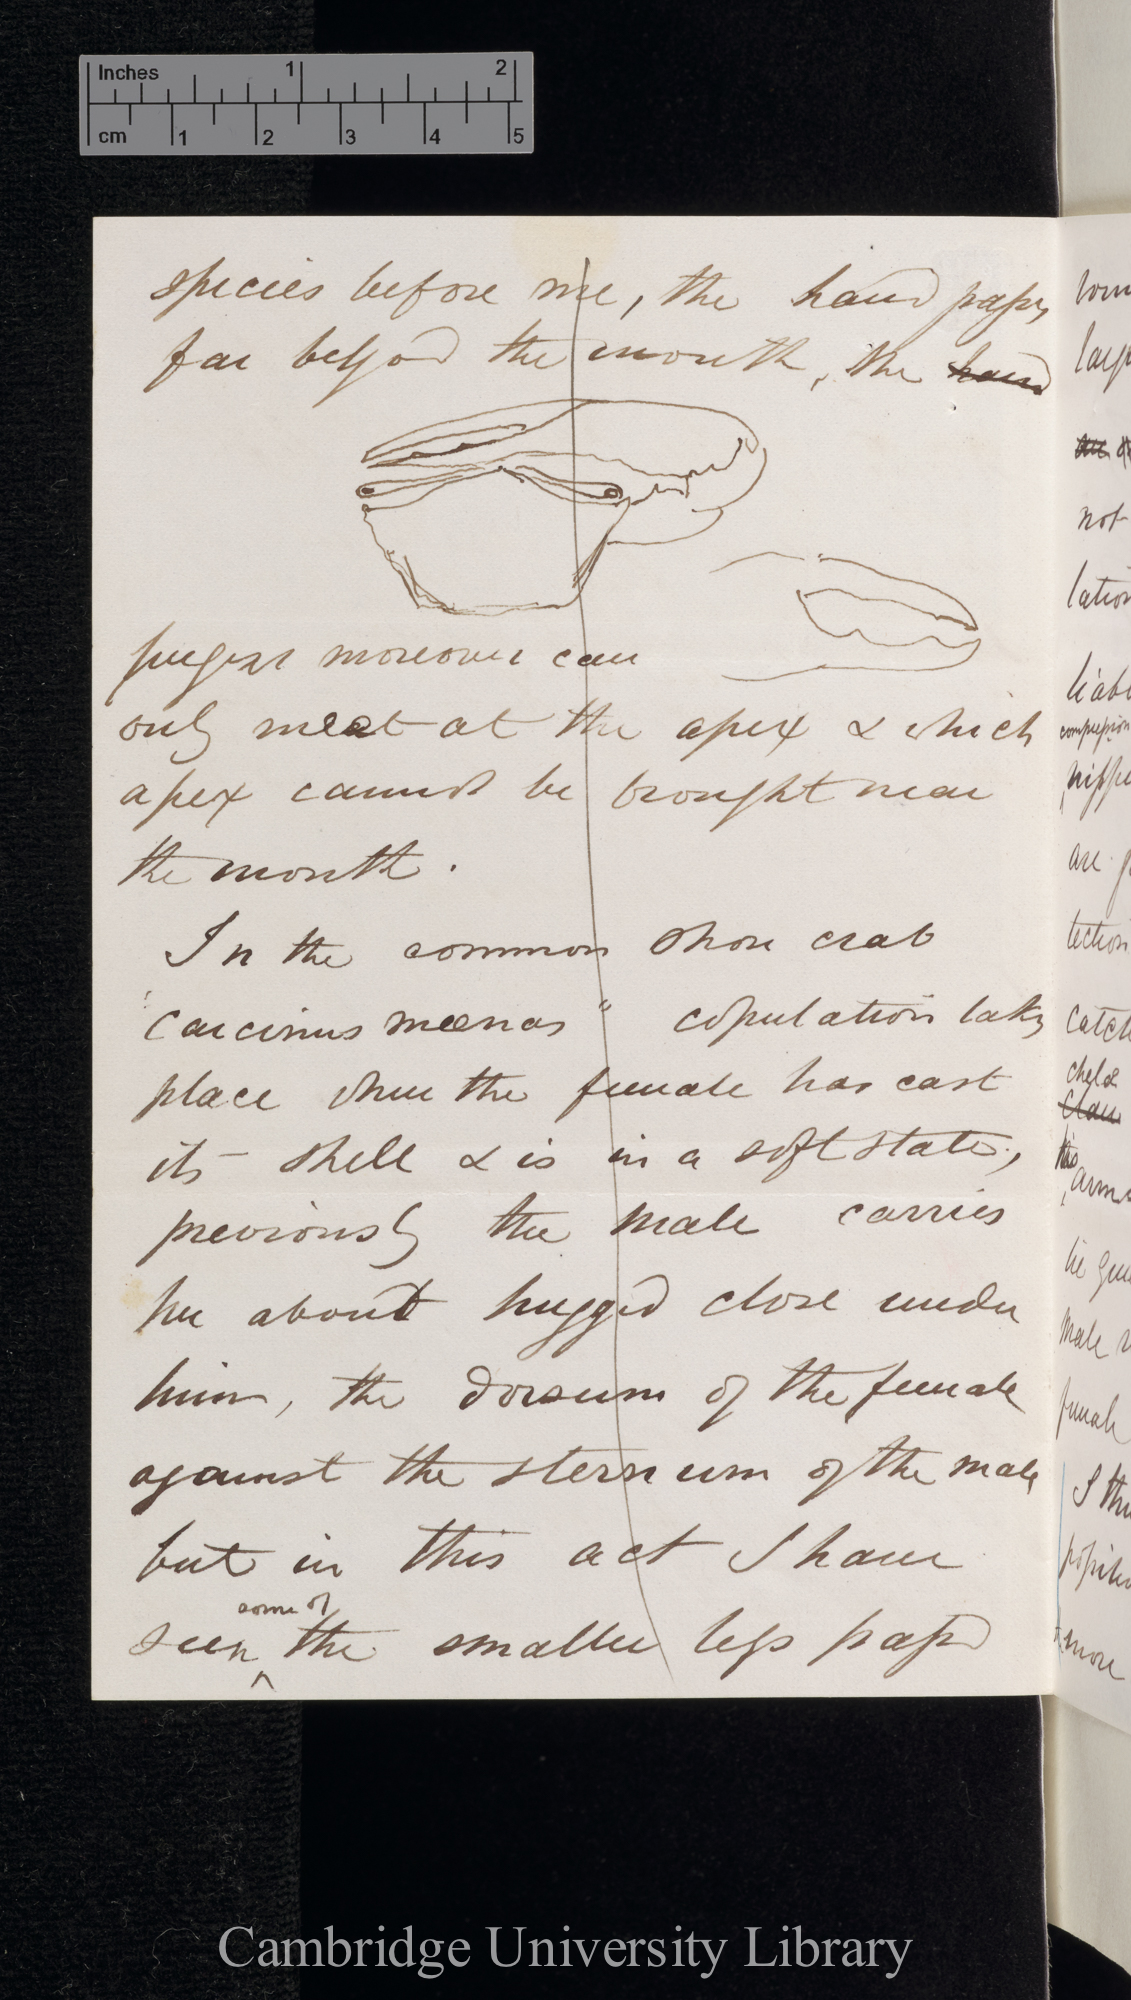 Inches 1 2
cm 1 2 3 4 5
species before me, the hand pass
far beyond the mouth, the hand
fingers moreover can
only meet at the apex & which
apex cannot be brought near
the mouth.
In the common shore crab
"carcinus mœnas" copulation takes
place when the female has cast
its shell & is in a soft state,
previously the male carries
her about hugged close under
him, the dorsum of the female
against the sternum of the male
but in this act I have
some of
seen ^ the smaller legs passed
larg
not
lation
compression
are
tection
catch
chelæ
claw
this
arm
male
female
more
Cambridge University Library